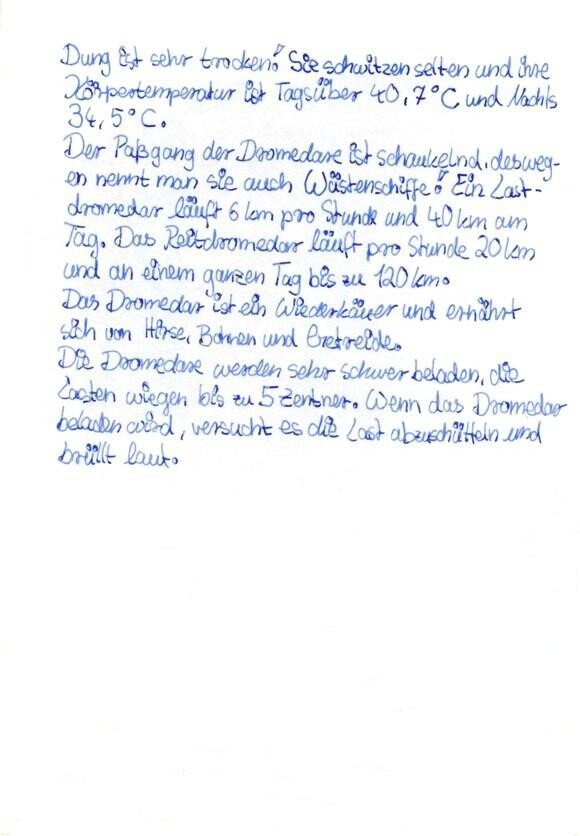 Dung ist sehr trocken! Sie schwitzen selten und ihre
Körpertemperatur ist Tagsüber 40,7°C und Nachts
34,5°C.
Der Paßgang der Dromedare ist schaukelnd, desweg-
en nennt man sie auch Wüstenschiffe! Ein Last-
dromedar läuft 6 km pro Stunde und 40 km am
Tag. Das Reitdromedar läuft pro Stunde 20 km
und an einem ganzen Tag bis zu 120 km.
Das Dromedar ist ein Wiederkäuer und ernährt
sich von Hirse, Bohnen und Getreide.
Die Dromedare werden sehr schwer beladen, die
Lasten wiegen bis zu 5 Zentner. Wenn das Dromedar
beladen wird, versucht es die Last abzuschütteln und
brüllt laut.